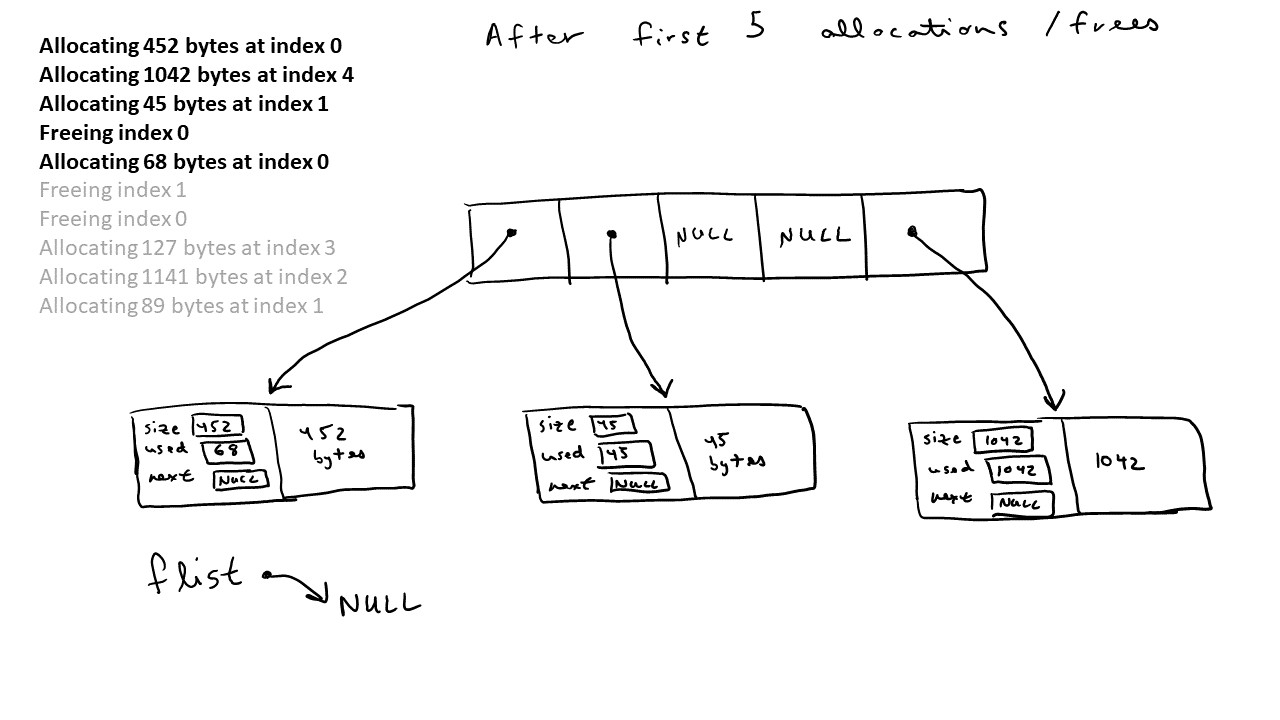 After first 5 allocations / frees
Allocating 452 bytes at index 0
Allocating 1042 bytes at index 4
Allocating 45 bytes at index 1
Freeing index 0
Allocating 68 bytes at index 0
Freeing index 1
Freeing index 0
Allocating 127 bytes at index 3
Allocating 1141 bytes at index 2
Allocating 89 bytes at index 1
NULL NULL
size 452
used 68
next NULL
452
bytes
size 45
used 45
next NULL
45
bytes
size 1042
used 1042
next NULL
1042
flist
NULL